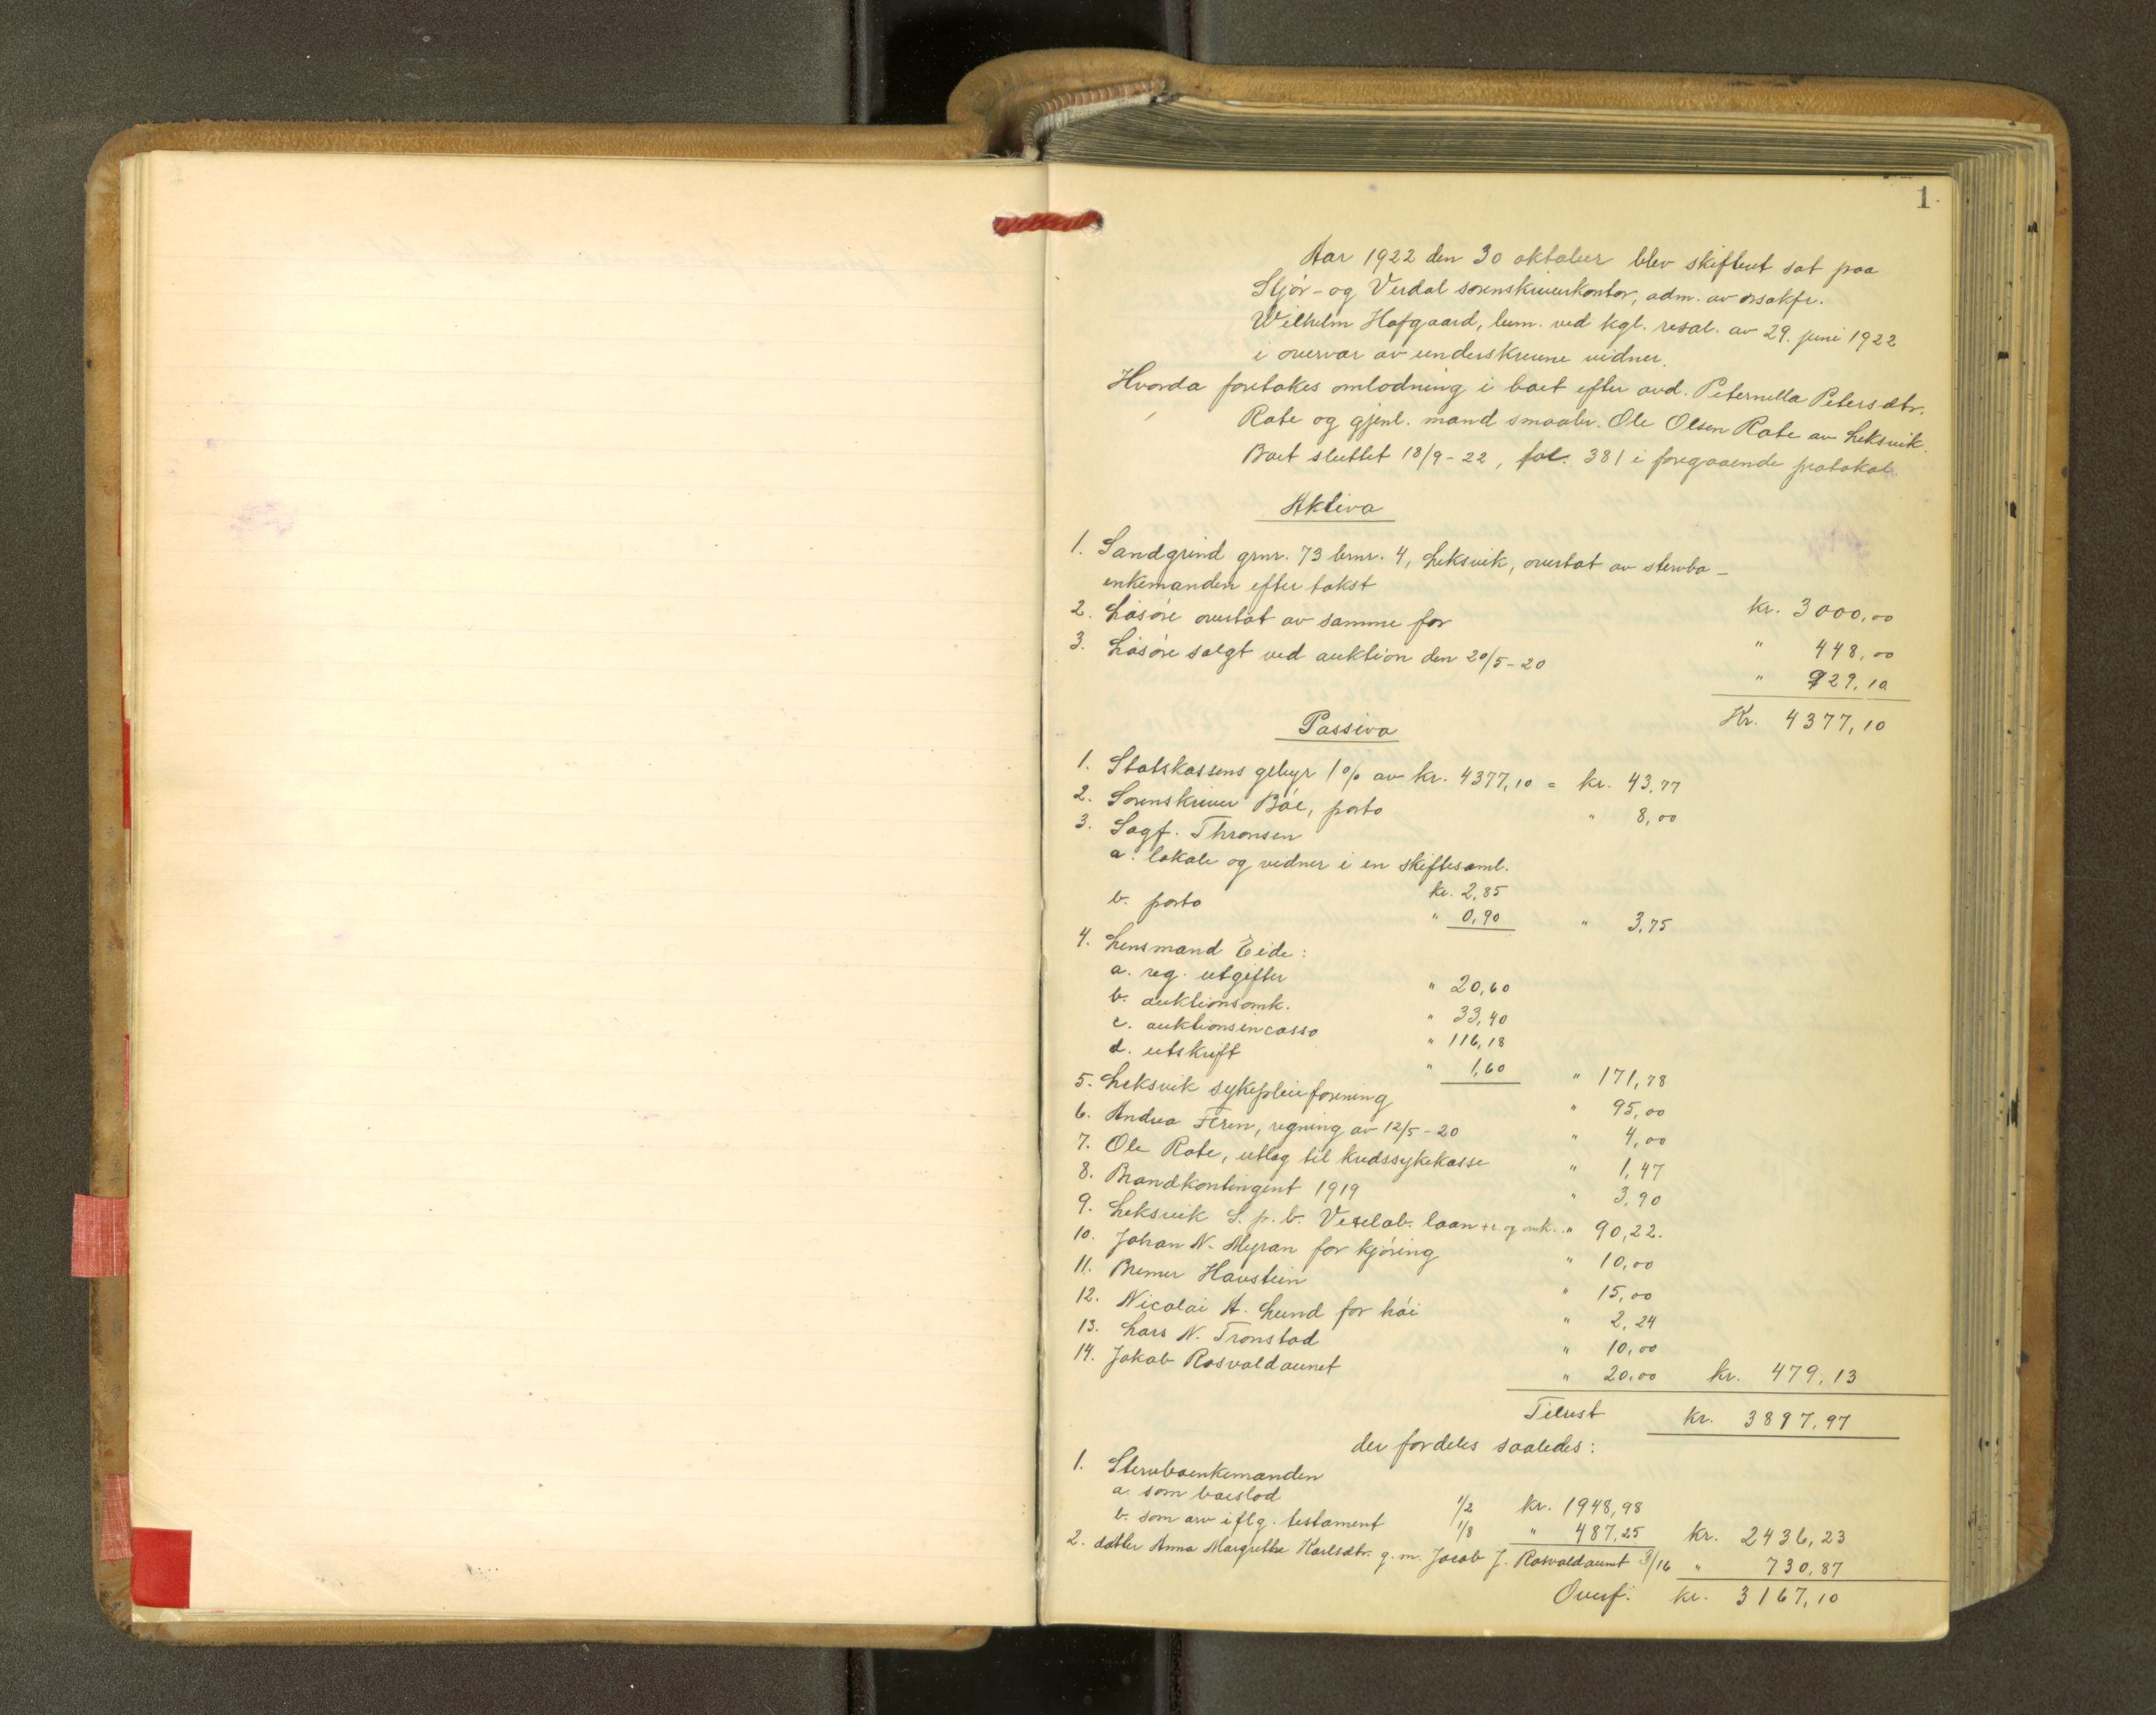 1.
Aar 1922 den 30 oktober blev skifteret sat paa
Stjør- og Verdal sorenskriverkontor, adm. av osakfr.
Wilhelm Hofgaard, bem. ved kgl. resol. av 29. juni 1922
i overvær av underskrevne vidner.
Hvorda foretokes omlodning i boet efter avd. Peternella Petersdtr.
Rate og gjenl. mand smaabr. Ole Olsen Rate av Leksvik.
Boet sluttet 18/9-22, fol. 381 i foregaaende protokol.
Aktiva
1. Sandgrind grnr. 73 brnr. 4, Leksvik, overtat av stervbo-
enkemanden efter takst kr. 3000,00
2. Løsøre overtat av samme for " 448,00
3. Løsøre solgt ved auktion den 20/5-20 " 929,10
Kr. 4377,10
Passiva
1. Statskassens gebyr 1% av kr. 4377,10 = kr. 43,77
2. Sorenskriver Bøe, porto " 8,00
3. Sagf. Thronsen
a. lokale og vidner i en skiftesaml. kr. 2,85
b. porto " 0,90 " 3,75
4. Lensmand Eide:
a. reg. utgifter " 20,60
b. auktionsomk. " 33,40
c. auktionsincasso " 116,18
d. utskrift " 1,60 " 171,78
5. Leksvik sykepleieforening " 95,00
6. Andrea Feren, regning av 12/5-20 " 4,00
7. Ole Rate, utlæg til kredssykekasse " 1,47
8. Brandkontingent 1919 " 3,90
9. Leksvik S. p. b. Vexelob. laan + r. og omk. " 90,22.
10. Johan N. Myran for kjøring " 10,00
11. Bremer Haustein " 15,00
12. Nicolai A. Lund for høi " 2,24
13. Lars N. Tronstad " 10,00
14. Jakob Rosvoldaunet " 20,00 kr. 479,13
Tilrest kr. 3897,97
der fordeles saaledes:
1. Stervboenkemanden
a. som boeslod 1/2 kr. 1948,98
b. som arv iflg. testament 1/8 " 487,25 kr. 2436,23
2. datter Anna Margrethe Karlsdtr. g. m. Jacob J. Rosvoldaunet 3/16 " 730,87
Overf. kr. 3167,10